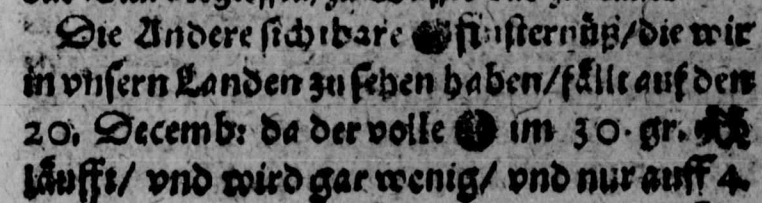 Die Andere sichtbare finsternüß/die wir
in vnsern Landen zu sehen haben/fällt auf den
20. Decemb: da der volle im 30. gr.
läufft/ vnd wird gar wenig/ vnd nur auff 4.